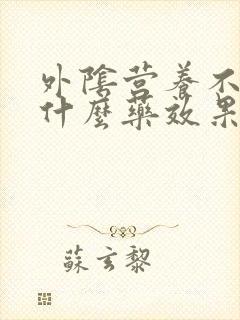 外陰营養不
什麼藥效果
蘇玄黎